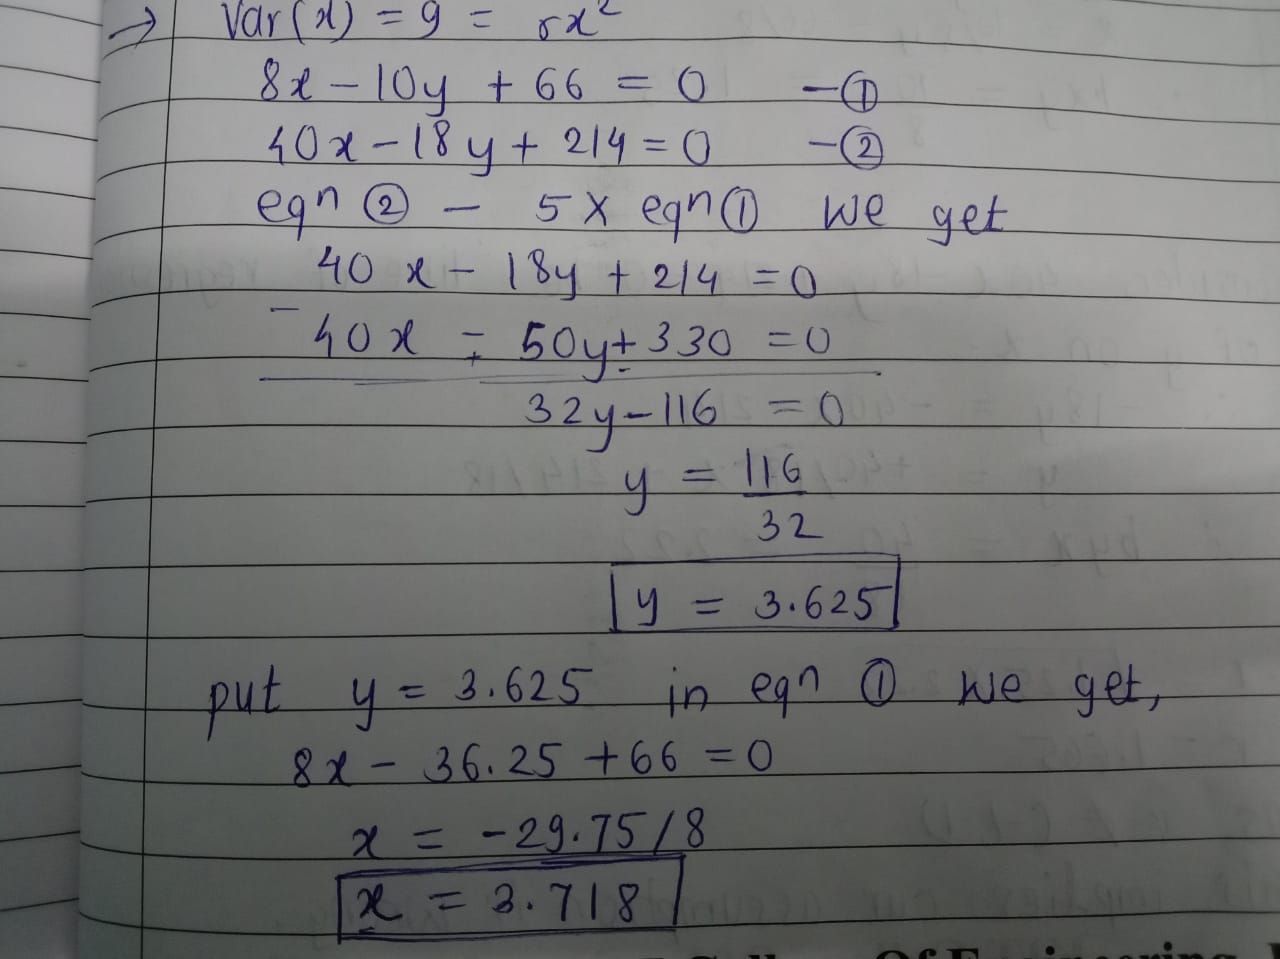 → Var(x) = 9 = σx²
8x – 10y + 66 = 0 –①
40x – 18y + 214 = 0 –②
eqn ② – 5 X eqn① we get
40x – 18y + 214 = 0
– 40x – 50y + 330 = 0
+ -
32y – 116 = 0
y = 116
32
y = 3.625
put y = 3.625 in eqn ① we get,
8x – 36.25 + 66 = 0
x = -29.75/8
x = 3.718
Of Engineering